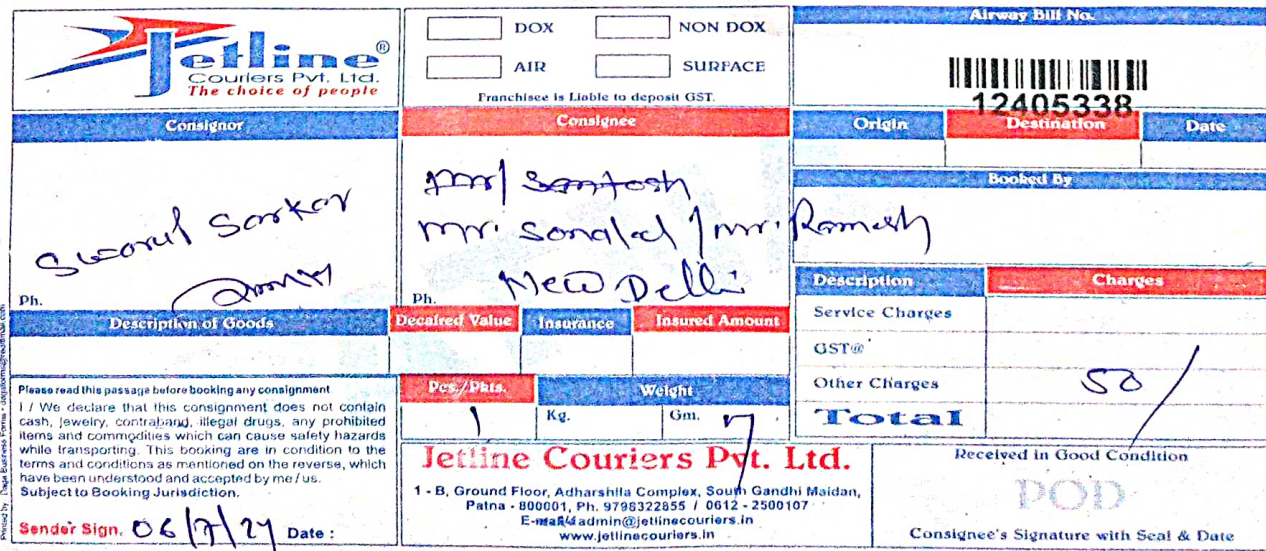 Jetline®
Couriers Pvt. Ltd.
The choice of people
DOX NON DOX
AIR SURFACE
Franchisee is Liable to deposit GST.
Airway Bill No.
12405338
Consignor
Consignee
Origin Destination Date
Sarkar
Ph.
Santosh
Mr. / Mr. Ramesh
New Delhi
Ph.
Booked By
Description Charges
Service Charges
GST@
Other Charges 50/
Total
Description of Goods Decalred Value Insurance Insured Amount
Pcs./Pkts. Weight
1 Kg. Gm.
Please read this passage before booking any consignment
I / We declare that this consignment does not contain
cash, jewelry, contraband, illegal drugs, any prohibited
items and commodities which can cause safety hazards
while transporting. This booking are in condition to the
terms and conditions as mentioned on the reverse, which
have been understood and accepted by me / us.
Subject to Booking Jurisdiction.
Sender Sign. 06/7/24 Date :
Jetline Couriers Pvt. Ltd.
1 - B, Ground Floor, Adharshila Complex, South Gandhi Maidan,
Patna - 800001, Ph. 9798322855 / 0612 - 2500107
admin@jetlinecouriers.in
www.jetlinecouriers.in
Received in Good Condition
POD
Consignee's Signature with Seal & Date